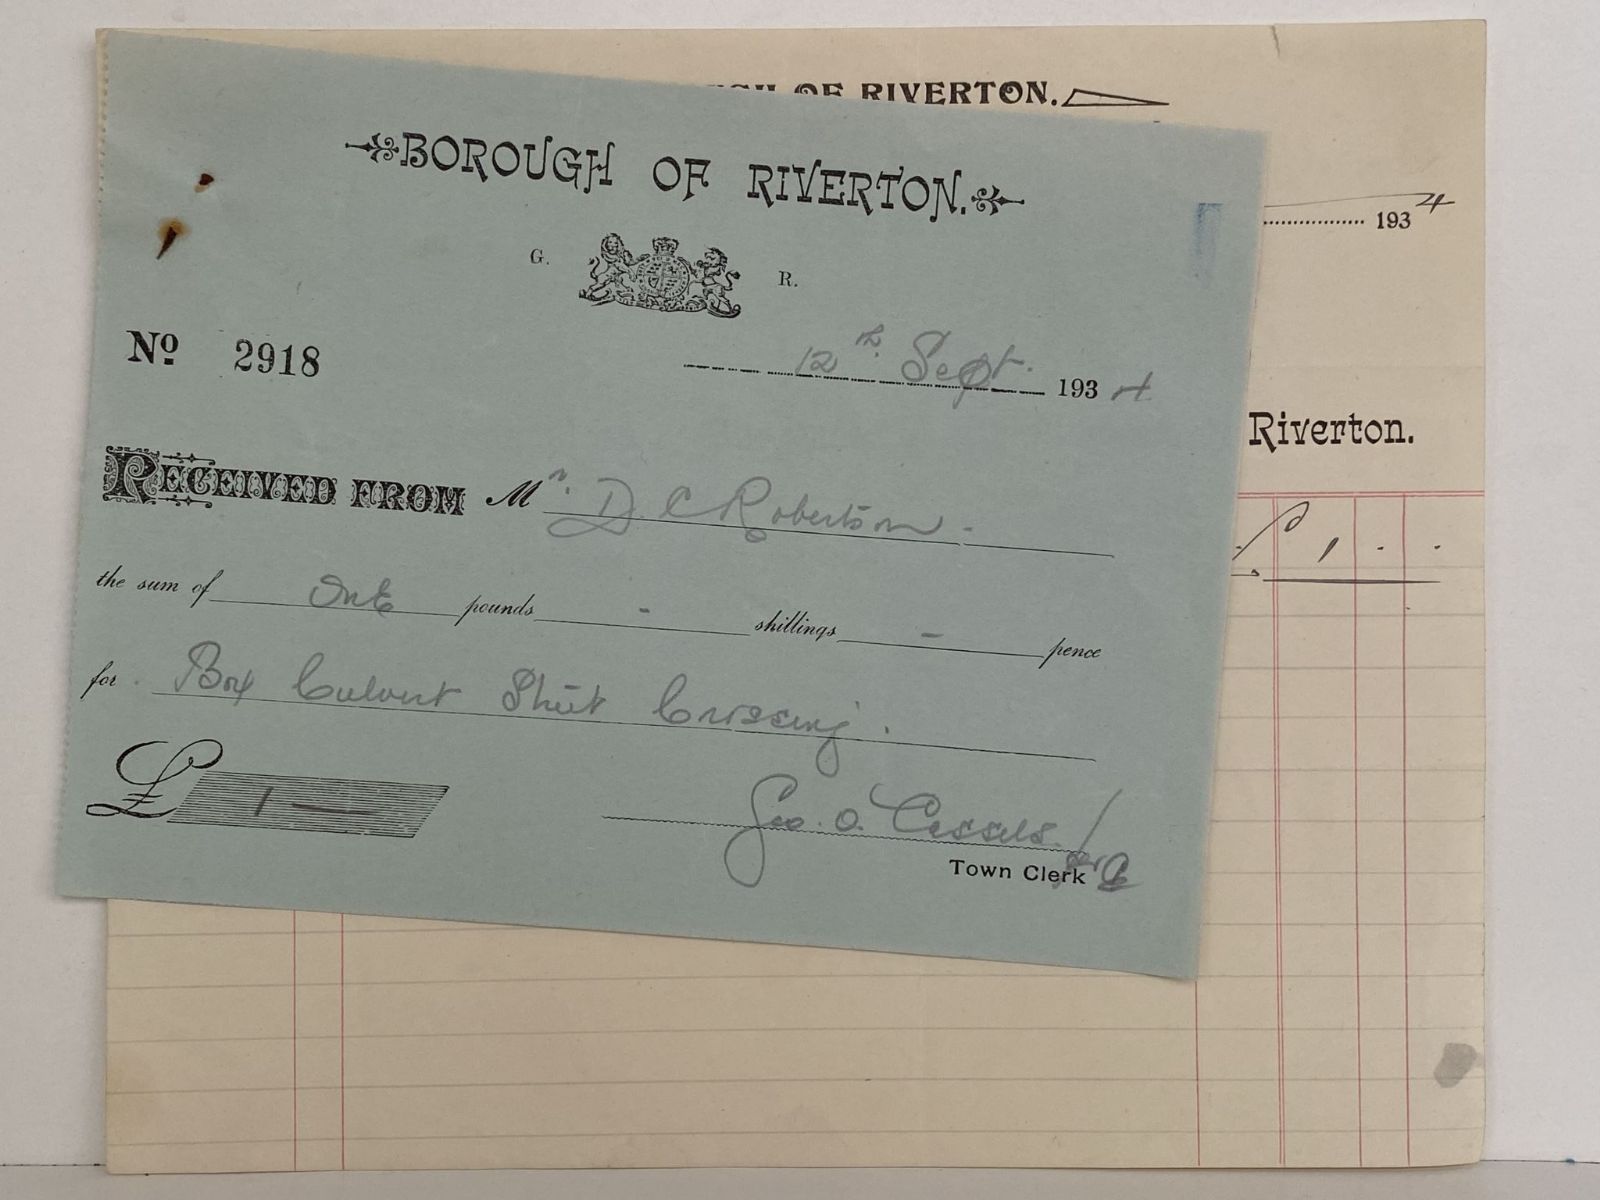 OF RIVERTON.
BOROUGH OF RIVERTON.
G. R.
193 4
No 2918
12th Sept. 193 4
Riverton.
RECEIVED FROM Mr. D. C Robertson.
£ 1 . .
the sum of One pounds - shillings - pence
for Box Culvert Street Crossing.
£ 1 —
Geo. O. Cassels. /
Town Clerk